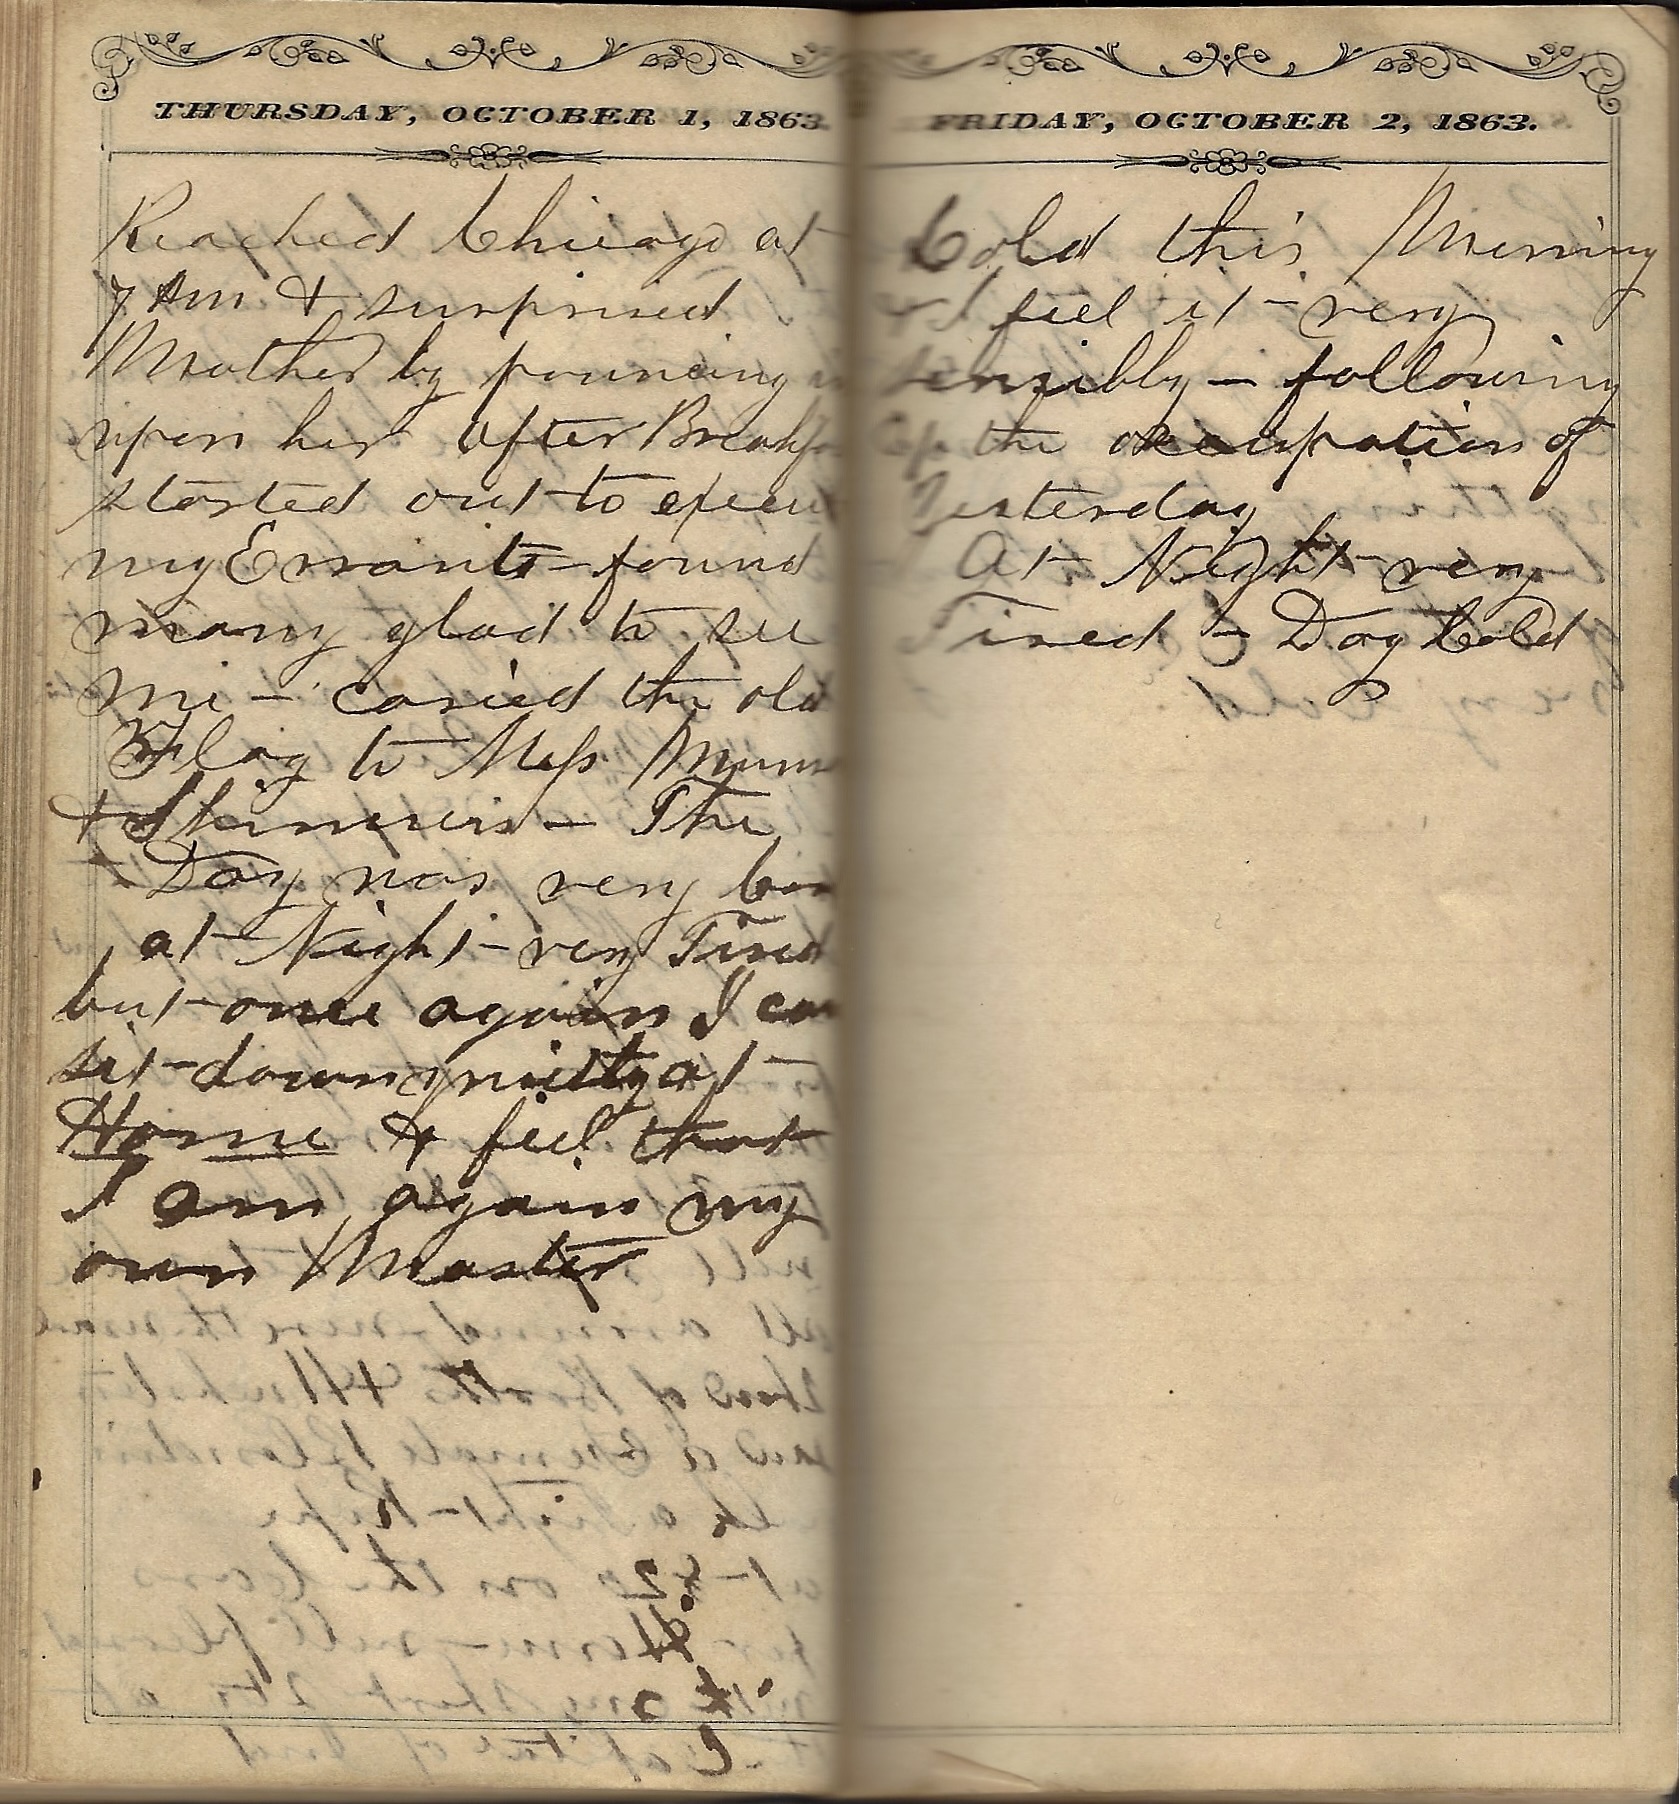 THURSDAY, OCTOBER 1, 1863.
Reached Chicago at
7 Am & surprised
Mother by pouncing in
upon her after Breakfa
started out to execu
my Errants - found
many glad to see
me - carried the old
Flag to Mess Munn
& Skinners - The
Day was very
at Night - very Tired
but once again I can
sit down quietly at
Home & feel that
I am again my
own Master
FRIDAY, OCTOBER 2, 1863.
Cold this Morning
and feel it - very
sensibly - following
up the occupation of
Yesterday
At Night very
Tired - Day Cold